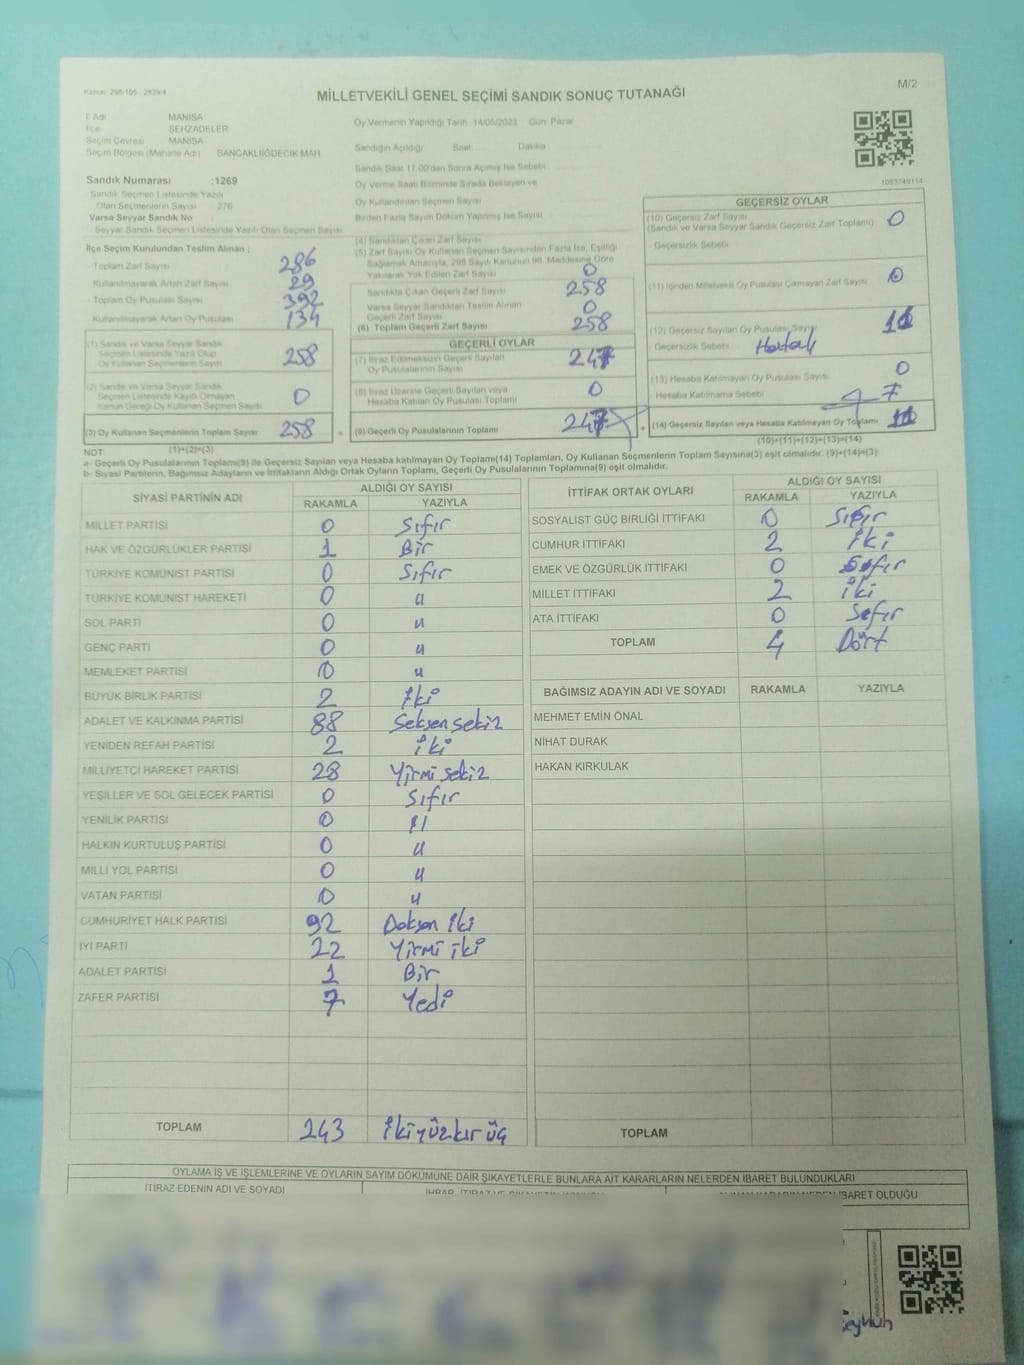 Kanun: 298/105 - 2839/4
M/2
MİLLETVEKİLİ GENEL SEÇİMİ SANDIK SONUÇ TUTANAĞI
İl Adı MANİSA
İlçe ŞEHZADELER
Seçim Çevresi MANİSA
Seçim Bölgesi (Mahalle Adı) SANCAKLIİĞDECİK MAH.
Sandık Numarası :1269
Sandık Seçmen Listesinde Yazılı
Olan Seçmenlerin Sayısı : 276
Varsa Seyyar Sandık No
Seyyar Sandık Seçmen Listesinde Yazılı Olan Seçmen Sayısı
Oy Vermenin Yapıldığı Tarih : 14/05/2023 Gün: Pazar
Sandığın Açıldığı Saat Dakika
Sandık Saat 17:00'den Sonra Açılmış İse Sebebi
Oy Verme Saati Bitiminde Sırada Bekleyen ve
Oy Kullandırılan Seçmen Sayısı
Birden Fazla Sayım Döküm Yapılmış İse Sayısı
1083749114
İlçe Seçim Kurulundan Teslim Alınan ;
- Toplam Zarf Sayısı 286
- Kullanılmayarak Artan Zarf Sayısı 29
- Toplam Oy Pusulası Sayısı 392
- Kullanılmayarak Artan Oy Pusulası 134
(1) Sandık ve Varsa Seyyar Sandık
Seçmen Listesinde Yazılı Olup
Oy Kullanan Seçmen Sayısı 258
(2) Sandık ve Varsa Seyyar Sandık
Seçmen Listesinde Kayıtlı Olmayan
Kanun Gereği Oy Kullanan Seçmen Sayısı 0
(3) Oy Kullanan Seçmenlerin Toplam Sayısı 258
(4) Sandıktan Çıkan Zarf Sayısı
(5) Zarf Sayısı Oy Kullanan Seçmen Sayısından Fazla İse, Eşitliği
Sağlamak Amacıyla, 298 Sayılı Kanunun 98. Maddesine Göre
Yakılarak Yok Edilen Zarf Sayısı 0
Sandıkta Çıkan Geçerli Zarf Sayısı 258
Varsa Seyyar Sandıktan Teslim Alınan
Geçerli Zarf Sayısı 0
(6) Toplam Geçerli Zarf Sayısı 258
GEÇERLİ OYLAR
(7) İtiraz Edilmeksizin Geçerli Sayılan
Oy Pusulalarının Sayısı 247
(8) İtiraz Üzerine Geçerli Sayılan veya
Hesaba Katılan Oy Pusulası Toplamı 0
(9) Geçerli Oy Pusulalarının Toplamı 247
GEÇERSİZ OYLAR
(10) Geçersiz Zarf Sayısı
(Sandık ve Varsa Seyyar Sandık Geçersiz Zarf Toplamı) 0
- Geçersizlik Sebebi
(11) İçinden Milletvekili Oy Pusulası Çıkmayan Zarf Sayısı 0
(12) Geçersiz Sayılan Oy Pusulası Sayısı 11
- Geçersizlik Sebebi Hatalı
(13) Hesaba Katılmayan Oy Pusulası Sayısı 0
- Hesaba Katılmama Sebebi 7
(14) Geçersiz Sayılan veya Hesaba Katılmayan Oy Toplamı 11
NOT: (1)+(2)=(3)
(10)+(11)+(12)+(13)=(14)
a- Geçerli Oy Pusulalarının Toplamı(9) ile Geçersiz Sayılan veya Hesaba katılmayan Oy Toplamı(14) Toplamları, Oy Kullanan Seçmenlerin Toplam Sayısına(3) eşit olmalıdır. (9)+(14)=(3)
b- Siyasi Partilerin, Bağımsız Adayların ve İttifakların Aldığı Ortak Oyların Toplamı, Geçerli Oy Pusulalarının Toplamına(9) eşit olmalıdır.
SİYASİ PARTİNİN ADI ALDIĞI OY SAYISI
RAKAMLA YAZIYLA
MİLLET PARTİSİ 0 Sıfır
HAK VE ÖZGÜRLÜKLER PARTİSİ 1 Bir
TÜRKİYE KOMÜNİST PARTİSİ 0 Sıfır
TÜRKİYE KOMÜNİST HAREKETİ 0 "
SOL PARTİ 0 "
GENÇ PARTİ 0 "
MEMLEKET PARTİSİ 0 "
BÜYÜK BİRLİK PARTİSİ 2 İki
ADALET VE KALKINMA PARTİSİ 88 Seksen sekiz
YENİDEN REFAH PARTİSİ 2 iki
MİLLİYETÇİ HAREKET PARTİSİ 28 Yirmi sekiz
YEŞİLLER VE SOL GELECEK PARTİSİ 0 Sıfır
YENİLİK PARTİSİ 0 "
HALKIN KURTULUŞ PARTİSİ 0 "
MİLLİ YOL PARTİSİ 0 "
VATAN PARTİSİ 0 "
CUMHURİYET HALK PARTİSİ 92 Doksan iki
İYİ PARTİ 22 Yirmi iki
ADALET PARTİSİ 1 Bir
ZAFER PARTİSİ 7 Yedi
TOPLAM 243 ikiyüzkır üç
İTTİFAK ORTAK OYLARI ALDIĞI OY SAYISI
RAKAMLA YAZIYLA
SOSYALİST GÜÇ BİRLİĞİ İTTİFAKI 0 Sıfır
CUMHUR İTTİFAKI 2 iki
EMEK VE ÖZGÜRLÜK İTTİFAKI 0 Sıfır
MİLLET İTTİFAKI 2 iki
ATA İTTİFAKI 0 Sıfır
TOPLAM 4 Dört
BAĞIMSIZ ADAYIN ADI VE SOYADI RAKAMLA YAZIYLA
MEHMET EMİN ÖNAL
NİHAT DURAK
HAKAN KIRKULAK
TOPLAM
OYLAMA İŞ VE İŞLEMLERİNE VE OYLARIN SAYIM DÖKÜMÜNE DAİR ŞİKAYETLERLE BUNLARA AİT KARARLARIN NELERDEN İBARET BULUNDUKLARI
İTİRAZ EDENİN ADI VE SOYADI
İBARET OLDUĞU